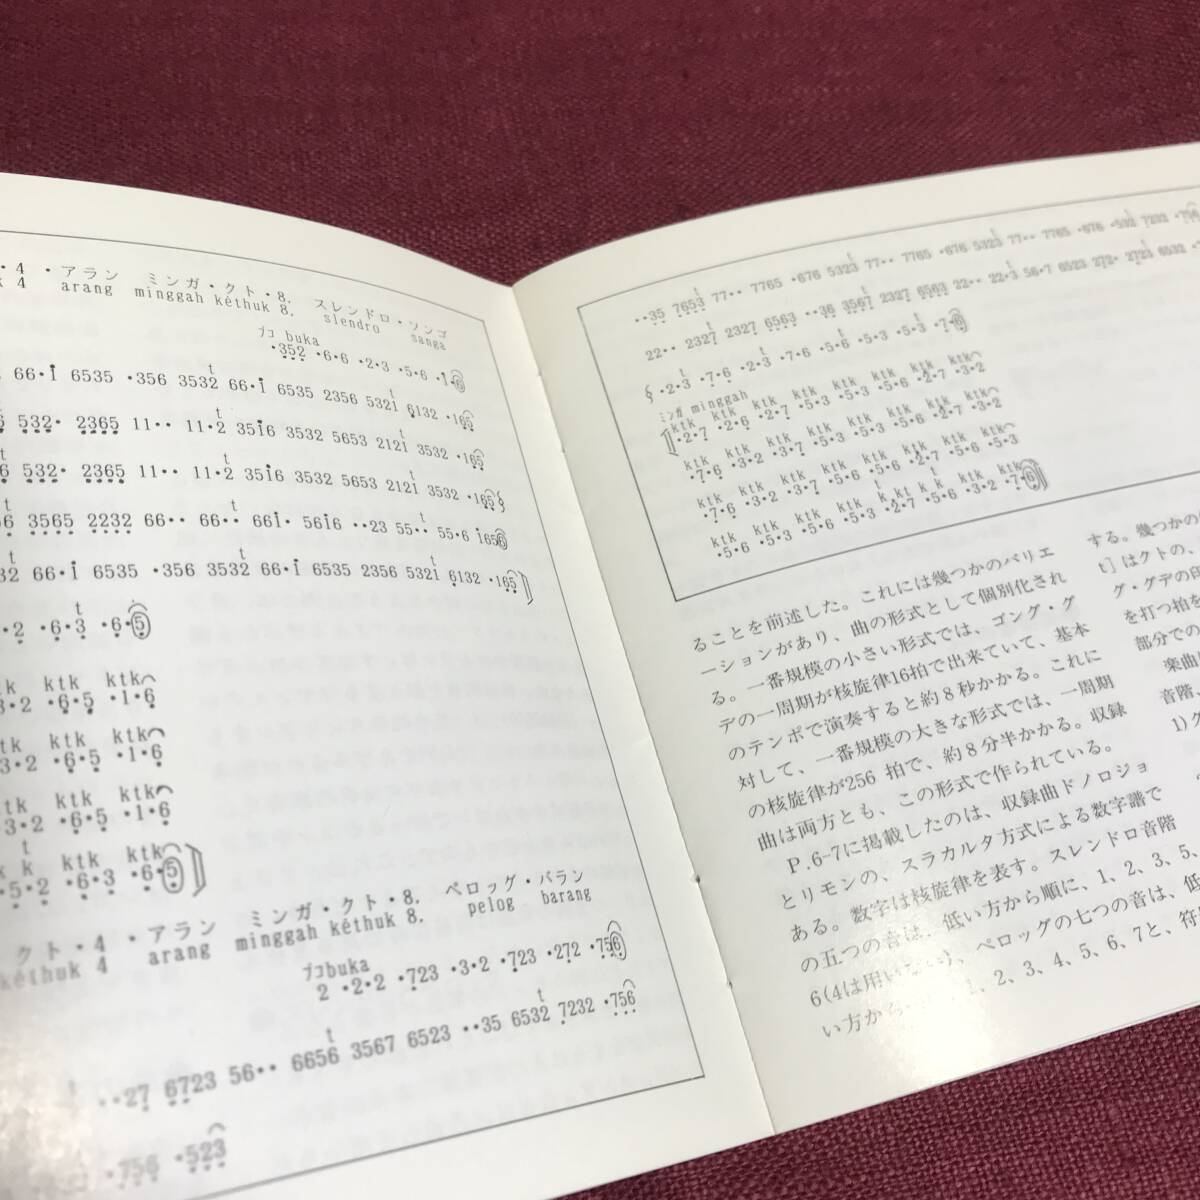 ・4 ・アラン ミンガ・クト・8. スレンドロ・ソンゴ
k 4 arang minggah kéthuk 8. slendro sanga
ブコ buka
・352 ・6・6 ・2・3 ・5・6 ・1・6
66・1 6535 ・356 3532 66・1 6535 2356 5321 6132 ・165
532・ 2365 11・・ 11・2 3516 3532 5653 2121 3532 ・165
6 532・ 2365 11・・ 11・2 3516 3532 5653 2121 3532 ・165
6 3565 2232 66・・ 66・・ 661・ 5616 ・・23 55・・ 55・6 1656
32 66・1 6535 ・356 3532 66・1 6535 2356 5321 6132 ・165
・2 ・6・3 ・6・5
tk ktk ktk
3・2 ・6・5 ・1・6
tk ktk ktk
3・2 ・6・5 ・1・6
ktk ktk
3・2 ・6・5 ・1・6
k k ktk ktk
・5・2 ・6・3 ・6・5
クト・4 ・アラン ミンガ・クト・8. ペロッグ・バラン
kéthuk 4 arang minggah kéthuk 8. pelog barang
ブコ buka
2 ・2・2 ・723 ・3・2 ・723 ・272 ・756
・・27 6723 56・・ 6656 3567 6523 ・・35 6532 7232 ・756
・756 ・523
・・35 7653 77・・ 7765 ・676 5323 77・・ 7765 ・676 5323 77・・ 7765 ・676 ・532 7232 ・756
22・・ 2327 2327 6563 ・・36 3567 2327 6563 22・・ 22・3 56・7 6523 272・ 2723 6532
・2・3 ・7・6 ・2・3 ・7・6 ・5・6 ・5・3 ・5・3 ・7・6
ミンガ minggah
ktk ktk ktk ktk ktk ktk ktk ktk
・2・7 ・2・6 ・2・7 ・5・3 ・5・3 ・5・6 ・2・7 ・3・2
ktk ktk ktk ktk ktk ktk ktk ktk
・7・6 ・3・2 ・3・7 ・5・3 ・5・3 ・5・6 ・2・7 ・3・2
ktk ktk ktk ktk ktk ktk ktk ktk
・7・6 ・3・2 ・3・7 ・5・6 ・5・6 ・2・7 ・5・6 ・5・3
ktk ktk ktk ktk k kt k k ktk
・5・6 ・5・3 ・5・6 ・5・3 ・2・7 ・5・6 ・3・2 ・7・6
ることを前述した。これには幾つかのバリエ
ーションがあり、曲の形式として個別化され
る。一番規模の小さい形式では、ゴング・グ
デの一周期が核旋律16拍で出来ていて、基本
のテンポで演奏すると約8秒かかる。これに
対して、一番規模の大きな形式では、一周期
の核旋律が256 拍で、約8分半かかる。収録
曲は両方とも、この形式で作られている。
P.6-7に掲載したのは、収録曲ドノロジョ
とリモンの、スラカルタ方式による数字譜で
ある。数字は核旋律を表す。スレンドロ音階
の五つの音は、低い方から順に、1、2、3、5、
6(4は用いない)、ペロッグの七つの音は、低
い方から 1、2、3、4、5、6、7と、符
する。幾つかの
t]はクトの、
グ・グデの印
を打つ拍を
部分での
楽曲
音階、
1)